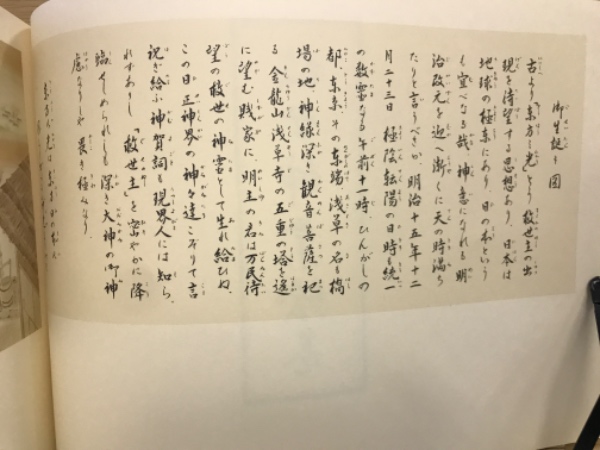 御生誕の図
古より「東方の光」とう救世主の出
現を待望する思想あり、日本は
地球の極東にあり日の本という
も宜べなる哉、神意になれる明
治改元を迎へ漸くに天の時満ち
たりと言うべきか、明治十五年十二
月二十三日 極陰転陽の日時も統一
の数霊なる午前十一時、ひんがしの
都、東京その東端浅草の名も橋
場の地、神縁深き観音菩薩を祀
る 金龍山浅草寺の五重の塔を遙
に望む賎家に、明主の君は万民待
望の救世の神霊として生れ給ひぬ、
この日正神界の神々達こぞりて言
祝ぎ給ふ神賀詞も現界人には知ら
れずあり し「救世主」を密やかに降
臨せしめられしも深き大神の御神
慮なりしや 畏き極みなり、